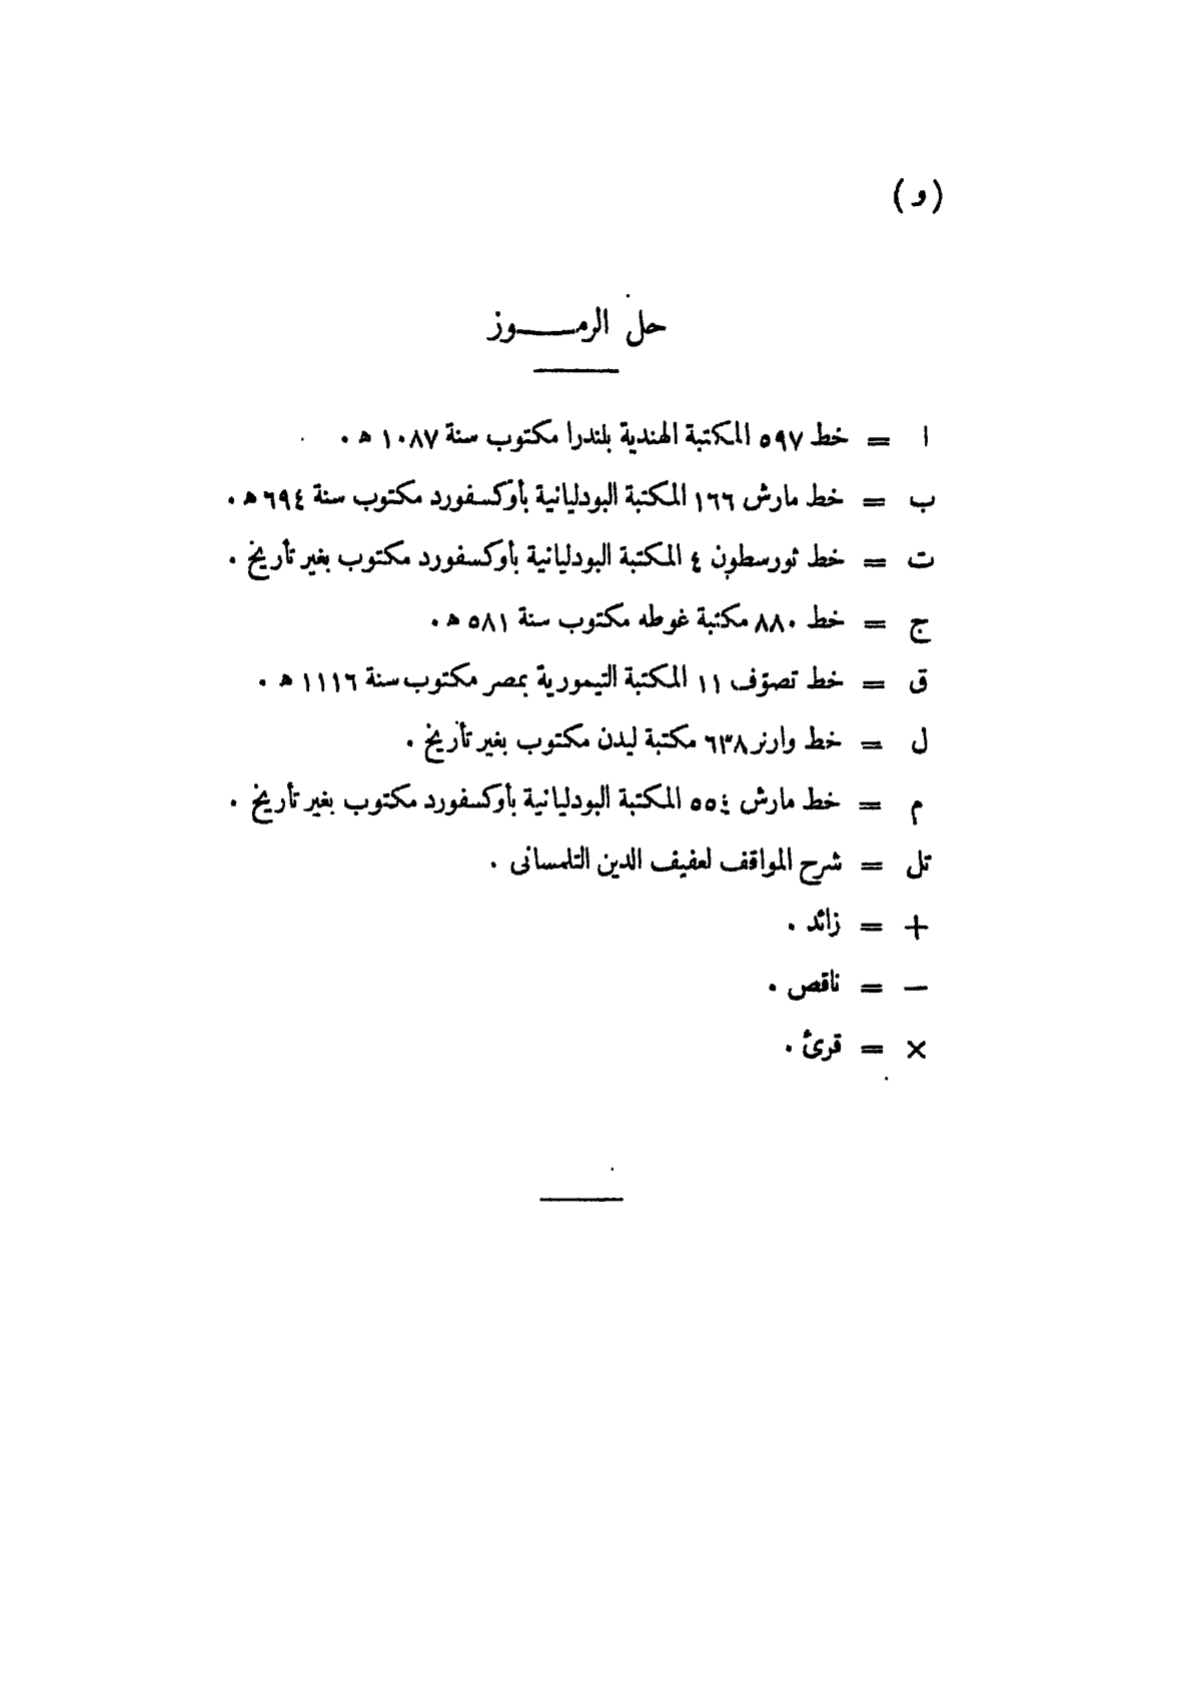 (و)
حل الرمـــوز
ا = خط ٥٩٧ المكتبة الهندية بلندرا مكتوب سنة ١٠٨٧ ه .
ب = خط مارش ١٦٦ المكتبة البودليانية بأوكسفورد مكتوب سنة ٦٩٤ ه .
ت = خط ثورسطون ٤ المكتبة البودليانية بأوكسفورد مكتوب بغير تأريخ .
ج = خط ٨٨٠ مكتبة غوطه مكتوب سنة ٥٨١ ه .
ق = خط تصوّف ١١ المكتبة التيمورية بمصر مكتوب سنة ١١١٦ ه .
ل = خط وارنر ٦٣٨ مكتبة ليدن مكتوب بغير تأريخ .
م = خط مارش ٥٥٤ المكتبة البودليانية بأوكسفورد مكتوب بغير تأريخ .
تل = شرح المواقف لعفيف الدين التلمسانى .
+ = زائد .
— = ناقص .
× = قرئ .